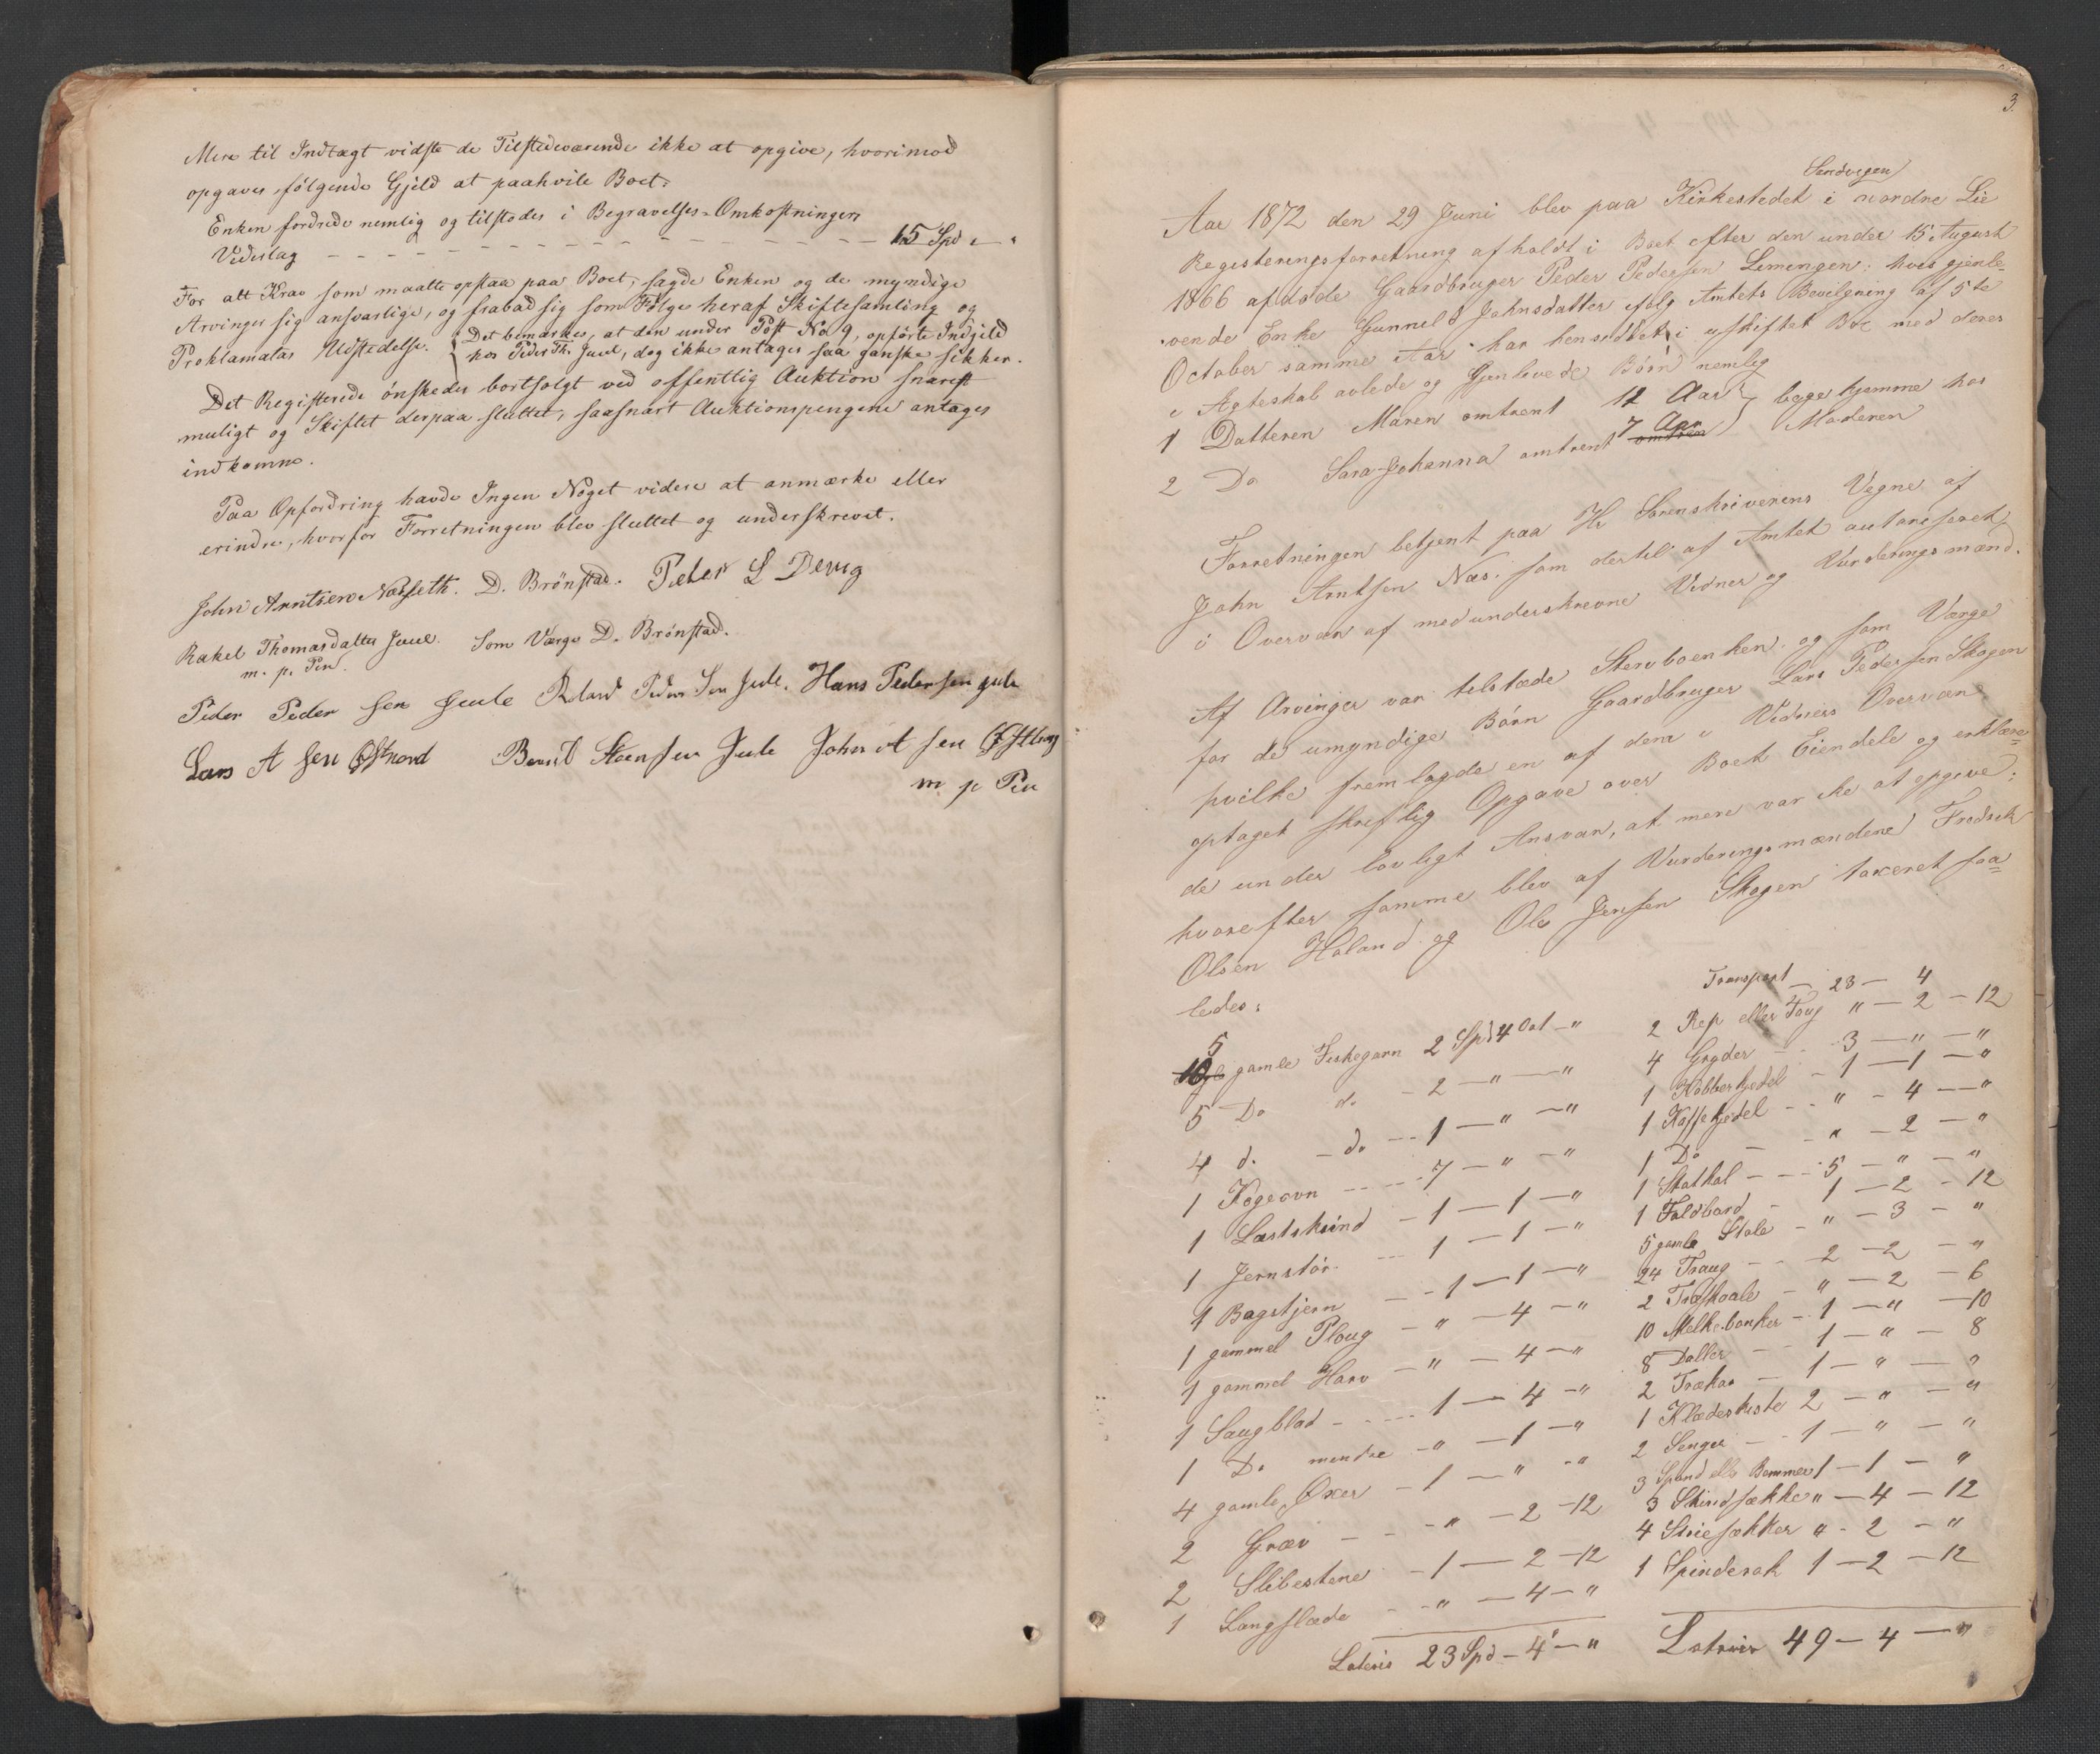 Mere til Indtægt vidste de Tilstedeværende ikke at opgive, hvorimod
opgaves følgende Gjeld at paahvile Boet:
Enken fordrede nemlig og tilstodes i Begravelses-Omkostninger
Vederlag 15 Spd „ „
For alt Krav som maatte opstaa paa Boet, sagde Enken og de myndige
Arvinger sig ansvarlige, og frabad sig som Følge heraf Skiftesamling og
Proklamatas Udstedelse. Det bemærkes, at den under Post No 9, opførte Indgjeld
hos Peder Th. Juul, dog ikke antages saa ganske sikker.
Det Registerede ønskedes bortsolgt ved offentlig Auktion snarest
muligt og Skiftet derpaa sluttet, saasnart Auktionspengene antages
indkomne.
Paa Opfordring havde Ingen Noget videre at anmærke eller
erindre, hvorfor Forretningen blev sluttet og underskrevet.
John Arntsen Næsseth. D. Brønstad. Peter L Devig
Rakel Thomasdatter Juul. Som Værge D. Brønstad.
m. p. Pen.
Peder Peder sen Peder Sen Jule. Hans Pedersen jule
Lars A sen Bernt Steensen Jule John A sen
m p Pen
3.
Sandvegen
Aar 1872 den 29 Juni blev paa Kirkestedet i nordre Lie
Registeringsforretning afholdt i Boet efter den under 15 August
1866 afdøde Gaardbruger Peder Pedersen Limingen; hvis gjenle-
vende Enke Gunnild Johnsdatter ifølg Amtets Bevilgning af 5te
October samme Aar har hensiddet i uskiftet Boe med deres
i Ægteskab avlede og Gjenlevede Børn nemlig
1 Datteren Maren omtrent 12 Aar
2 Do Sara Johanna omtrent 7 Aar } bege hjemme hos Moderen
Forretningen betjent paa Hr Sorenskriverens Vegne af
John Arntsen Næs. som dertil af Amtet autoriseret
i Overvær af medunderskrevne Vidner og Vurderingsmænd.
Af Arvinger var tilstæde Stervboenken, og som Værge
for de umyndige Børn Gaardbruger Lars Pedersen Skogen
hvilke fremlagde en af dem i Vidners Overvær
optaget skreflig Opgave over Boets Eiendele og erklære-
de under lovligt Ansvar, at mere var ike at opgive;
hvorefter samme blev af Vurderingsmændene Fredrek
Olsen Haland og Ole Jensen Skogen taxeret saa-
ledes:
5 gamle Fiskegarn 2 Spd 4 Ort - „
5 Do do - 2 - „ - „
4 do - do - 1 - „ - „
1 Kogeovn - 7 - „ - „
1 Læstskind - 1 - 1 - „
1 Jernstør - 1 - 1 - „
1 Bagstjern - 1 - 1 - „
1 gammel Ploug - „ - 4 - „
1 gammel Harv - „ - 4 - „
1 Saugblad - 1 - 4 - „
1 Do mindre - „ - 1 - „
4 gamle Øxer - 1 - „ - „
2 Græv - „ - 2 - 12
2 Slibestene - 1 - 2 - 12
1 Langslæde - „ - 4 - „
Lateris 23 Spd - 4 - „
Transport - 23 - 4
2 Rep eller Toug „ - 2 - 12
4 Gryder - 3 - „ - „
1 Kobberkjedel - 1 - 1 - „
1 Kaffekjedel - „ - 4 - „
1 Do - „ - 2 - „
1 Skathal - 5 - „ - „
1 Foldbord - 1 - 2 - 12
5 gamle Stole - „ - 3 - „
24 Traug - 2 - 2 - „
2 Træskaale - „ - 2 - 6
10 Melkebonker - 1 - „ - 10
8 Daller - 1 - „ - 8
2 Trækar - 1 - „ - „
1 Klædeskiste 2 - „ - „
2 Senger - 1 - „ - „
3 Spand eller Bommer 1 - 1 - „
3 Skindsække „ - 4 - 12
4 Striesækker „ - 2 - „
1 Spinderok 1 - 2 - 12
Latries 49 - 4 - „